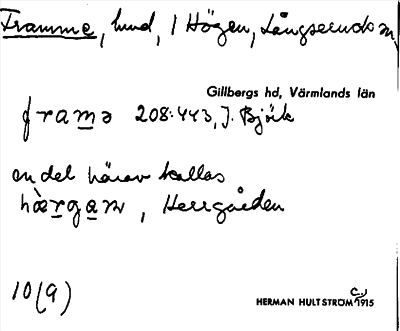 Framme, hmd, i Högen, Långseruds sn,
Gillbergs hd, Värmlands län
framə 208:443, J. Björk
en del härav kallas
hàrgaɲ, Herrgården
10(9)
HERMAN HULTSTRÖM c. 1915